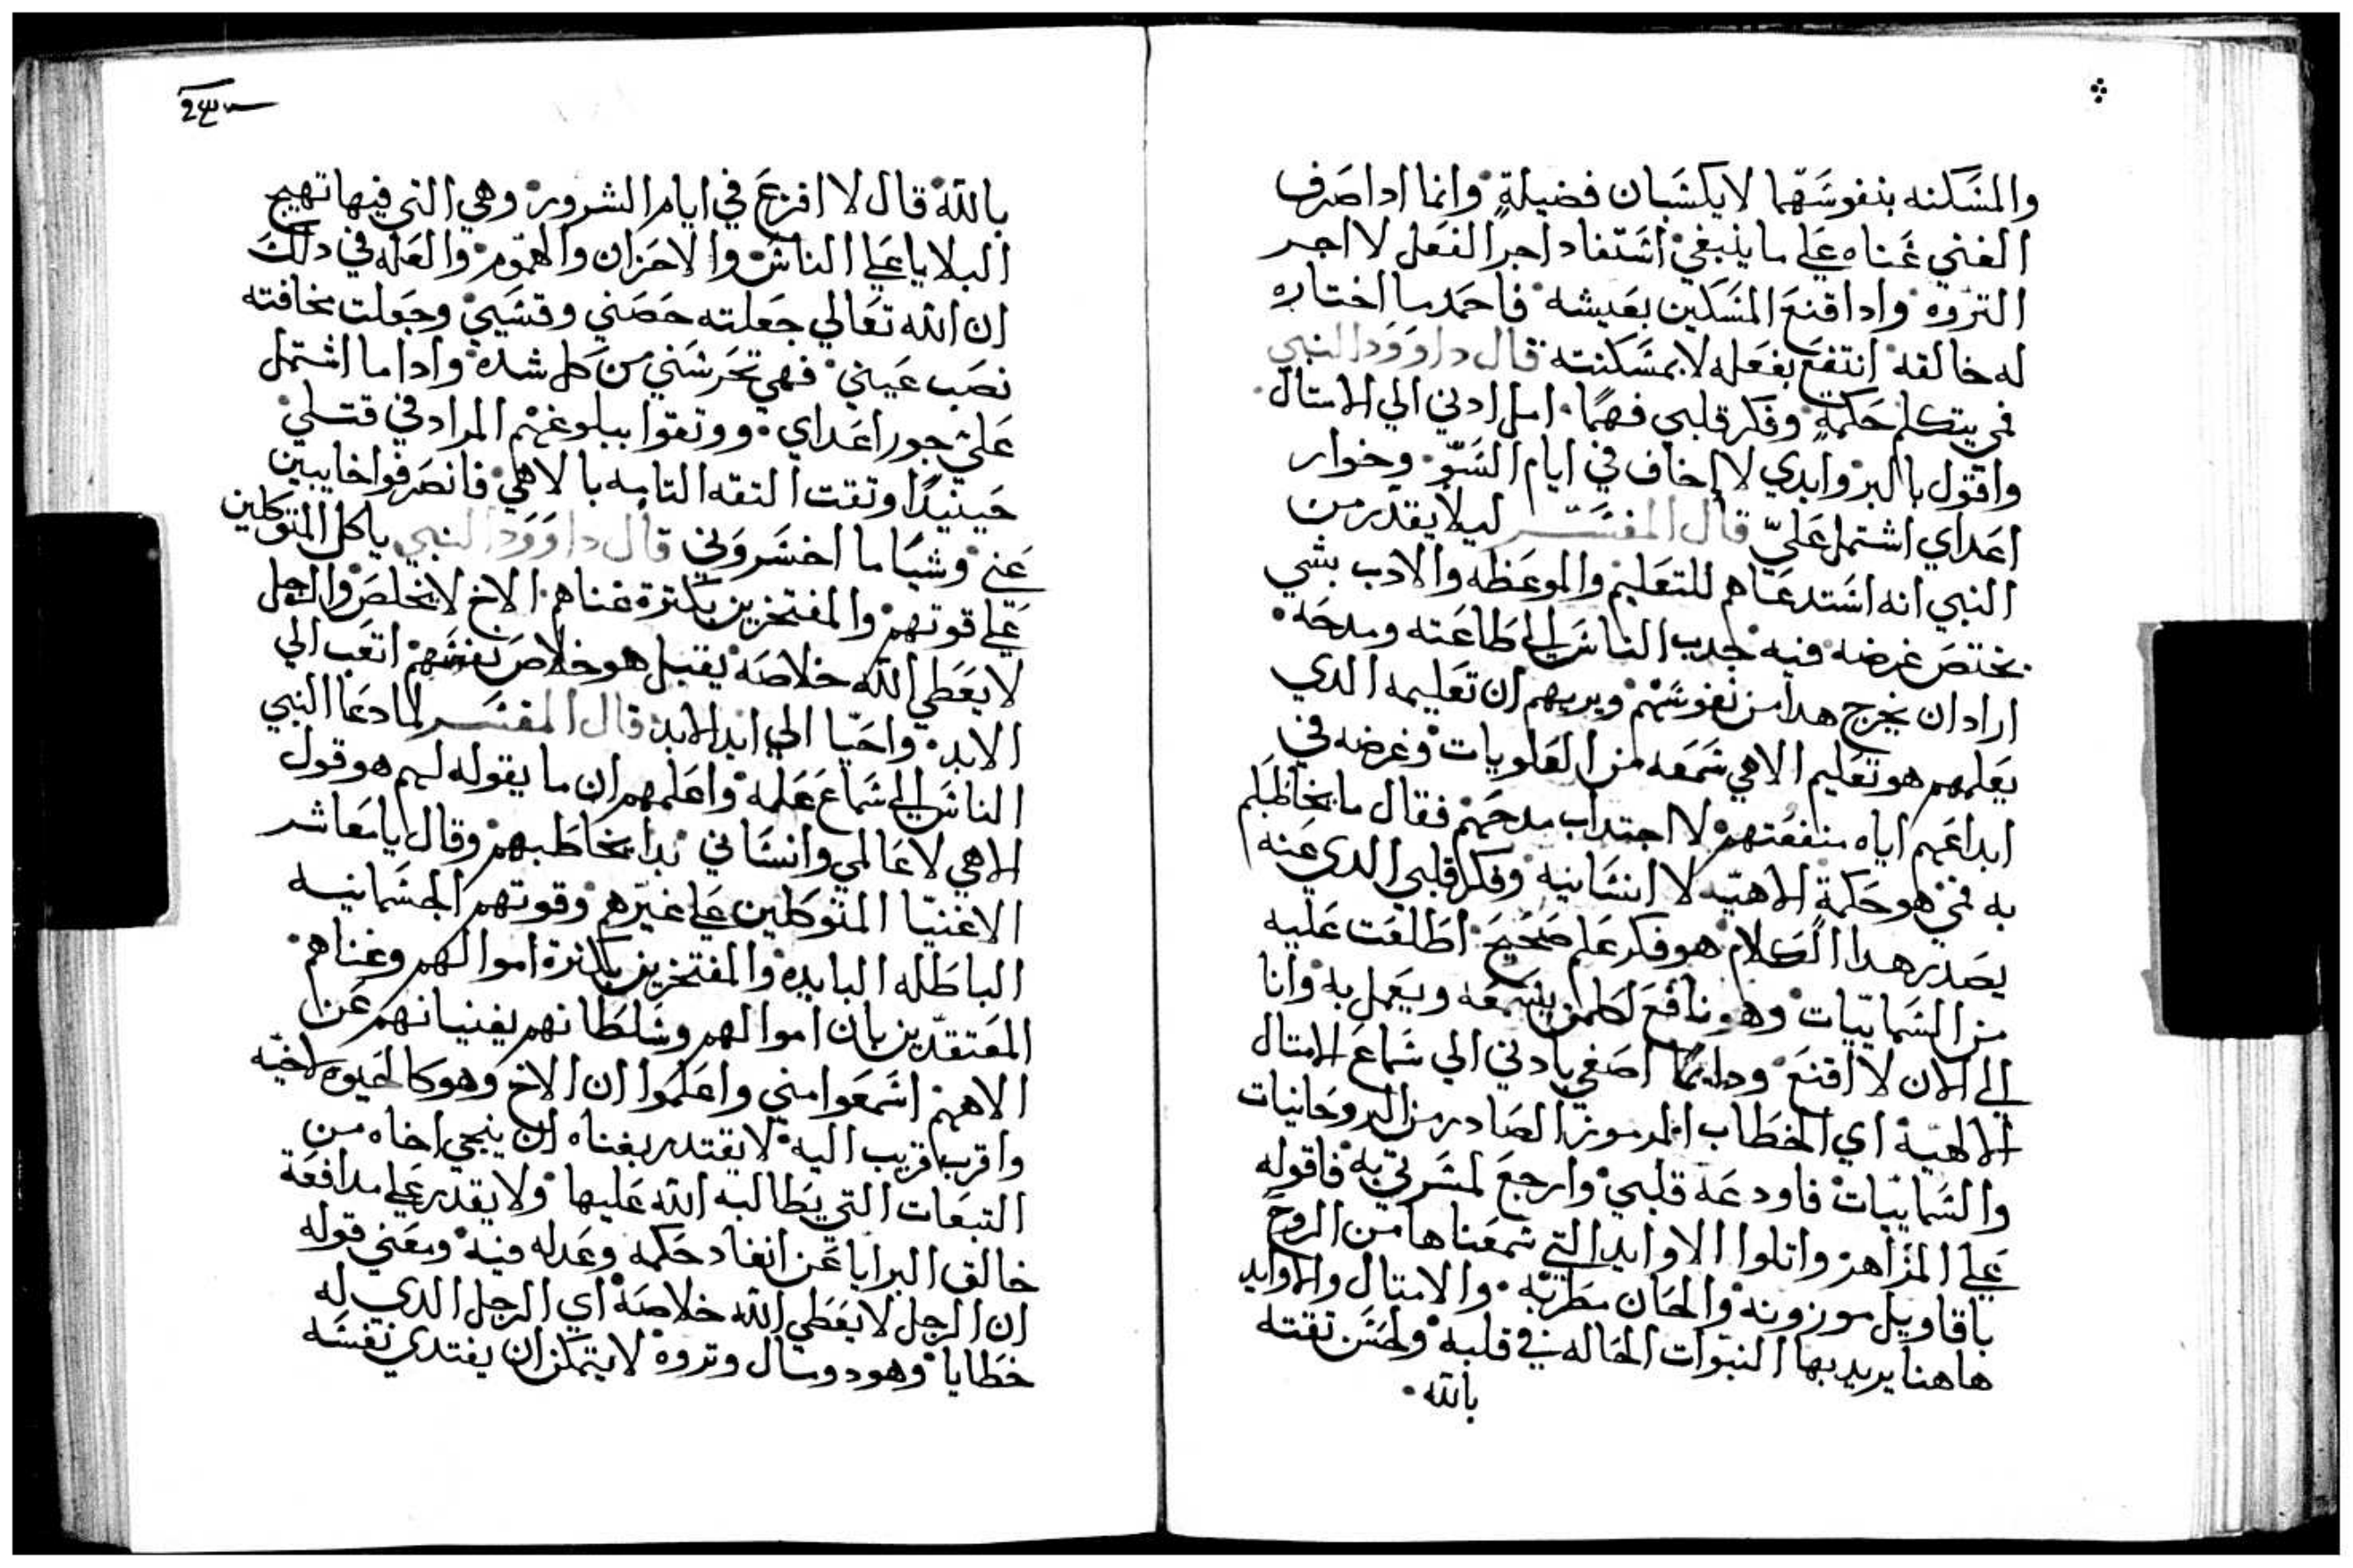 والمسكنه بنفوسهما لا يكسبان فضيلة وانما ادا صرف
الغني غناه علي ما ينبغي استفاد اجر الفعل لا اجر
التروه وادا قنع المسكين بعيشه فاحمد ما اختاره
له خالقه انتفع بفعله لا بمسكنته قال داوود النبي
فمي يتكلم حكمة وفكر قلبي فهمًا امل ادني الي الامتال
واقول بالبر وابدي لا اخاف في ايام السوّ وخوار
اعداي اشتمل عليّ قال المفسر ليلا يقدر من
النبي انه استدعاهم للتعليم والموعظه والادب بشي
يختص غرضه فيه جدب الناس الي طاعته ومدحه
اراد ان يخرج هدا من نفوسهم ويريهم ان تعليمه الدي
يعلمهم هو تعليم الاهي سمعه من العلويات وغرضه في
ابداعهم اياه منفعتهم لا اجتداب مدحهم فقال ما يخاطبكم
به فمي هو حكمة الاهيّه لا انسانيه وفكر قلبي الدي عنه
يصدر هدا الكلام هو فكر علم صحيح اطلعت عليه
من السماييّات وهو نافع لكلمن يسمعه ويعمل به وانا
الي الان لا اقنع ودايمًا اصغي بادني الي سماع الامتال
الالهيّة اي الخطاب المرموز الصادر من الروحانيات
والسماييّات فاودعه قلبي وارجع لمسرتي به فاقوله
علي المزاهر واتلوا الاوابد التي سمعناها من الروح
باقاويل موزونه والحان مطربه والامتال والاوابد
هاهنا يريد بها النبوات الحاله في قلبه ولحسن تقته
بالله
بالله قال لا افزع في ايام الشرور وهي التي فيها تهيج
البلايا علي الناس والاحزان والهموم والعله في دلك
ان الله تعالي جعلته حصني وقسيي وجعلت مخافته
نصب عيني فهي تحرسني من كل شده وادا ما اشتمل
علي جور اعداي ووتقوا ببلوغهم المراد في قتلي
حينيدًا وتقت التقه التامه بالاهي فانصرفوا خايبين
عني وشيا ما اخسروني قال داوود النبي ياكل المتوكلين
علي قوتهم والمفتخرين بكترة غناهم الاخ لا يخلص والرجل
لا يعطي الله خلاصه يقتبل هو خلاص نفسهم اتعب الي
الابد واحيا الي ابد الابد قال المفسر لما دعا النبي
الناس الي سماع علمه واعلمهم ان ما يقوله لهم هو قول
الاهي لا عالمي وانساني بدا يخاطبهم وقال يا معاشر
الاغنيّا المتوكلين علي غيرهم وقوتهم الجسمانيه
الباطله البايده والمفتخرين بكترة اموالهم وغناهم
المعتقدين بان اموالهم وسلطانهم يغنيانهم عن
الاههم اسمعوا مني واعلموا ان الاخ وهو كالحيوه لاخيه
واقرب قريب اليه لا يقتدر بغناه ان ينجي اخاه من
التبعات التي يطالبه الله عليها ولا يقدر علي مدافعة
خالق البرايا عن انفاد حكمه وعدله فيه ومعني قوله
ان الرجل لا يعطي الله خلاصه اي الرجل الدي له
خطايا وهو دو مال وتروه لا يتمكن ان يفتدي نفسه